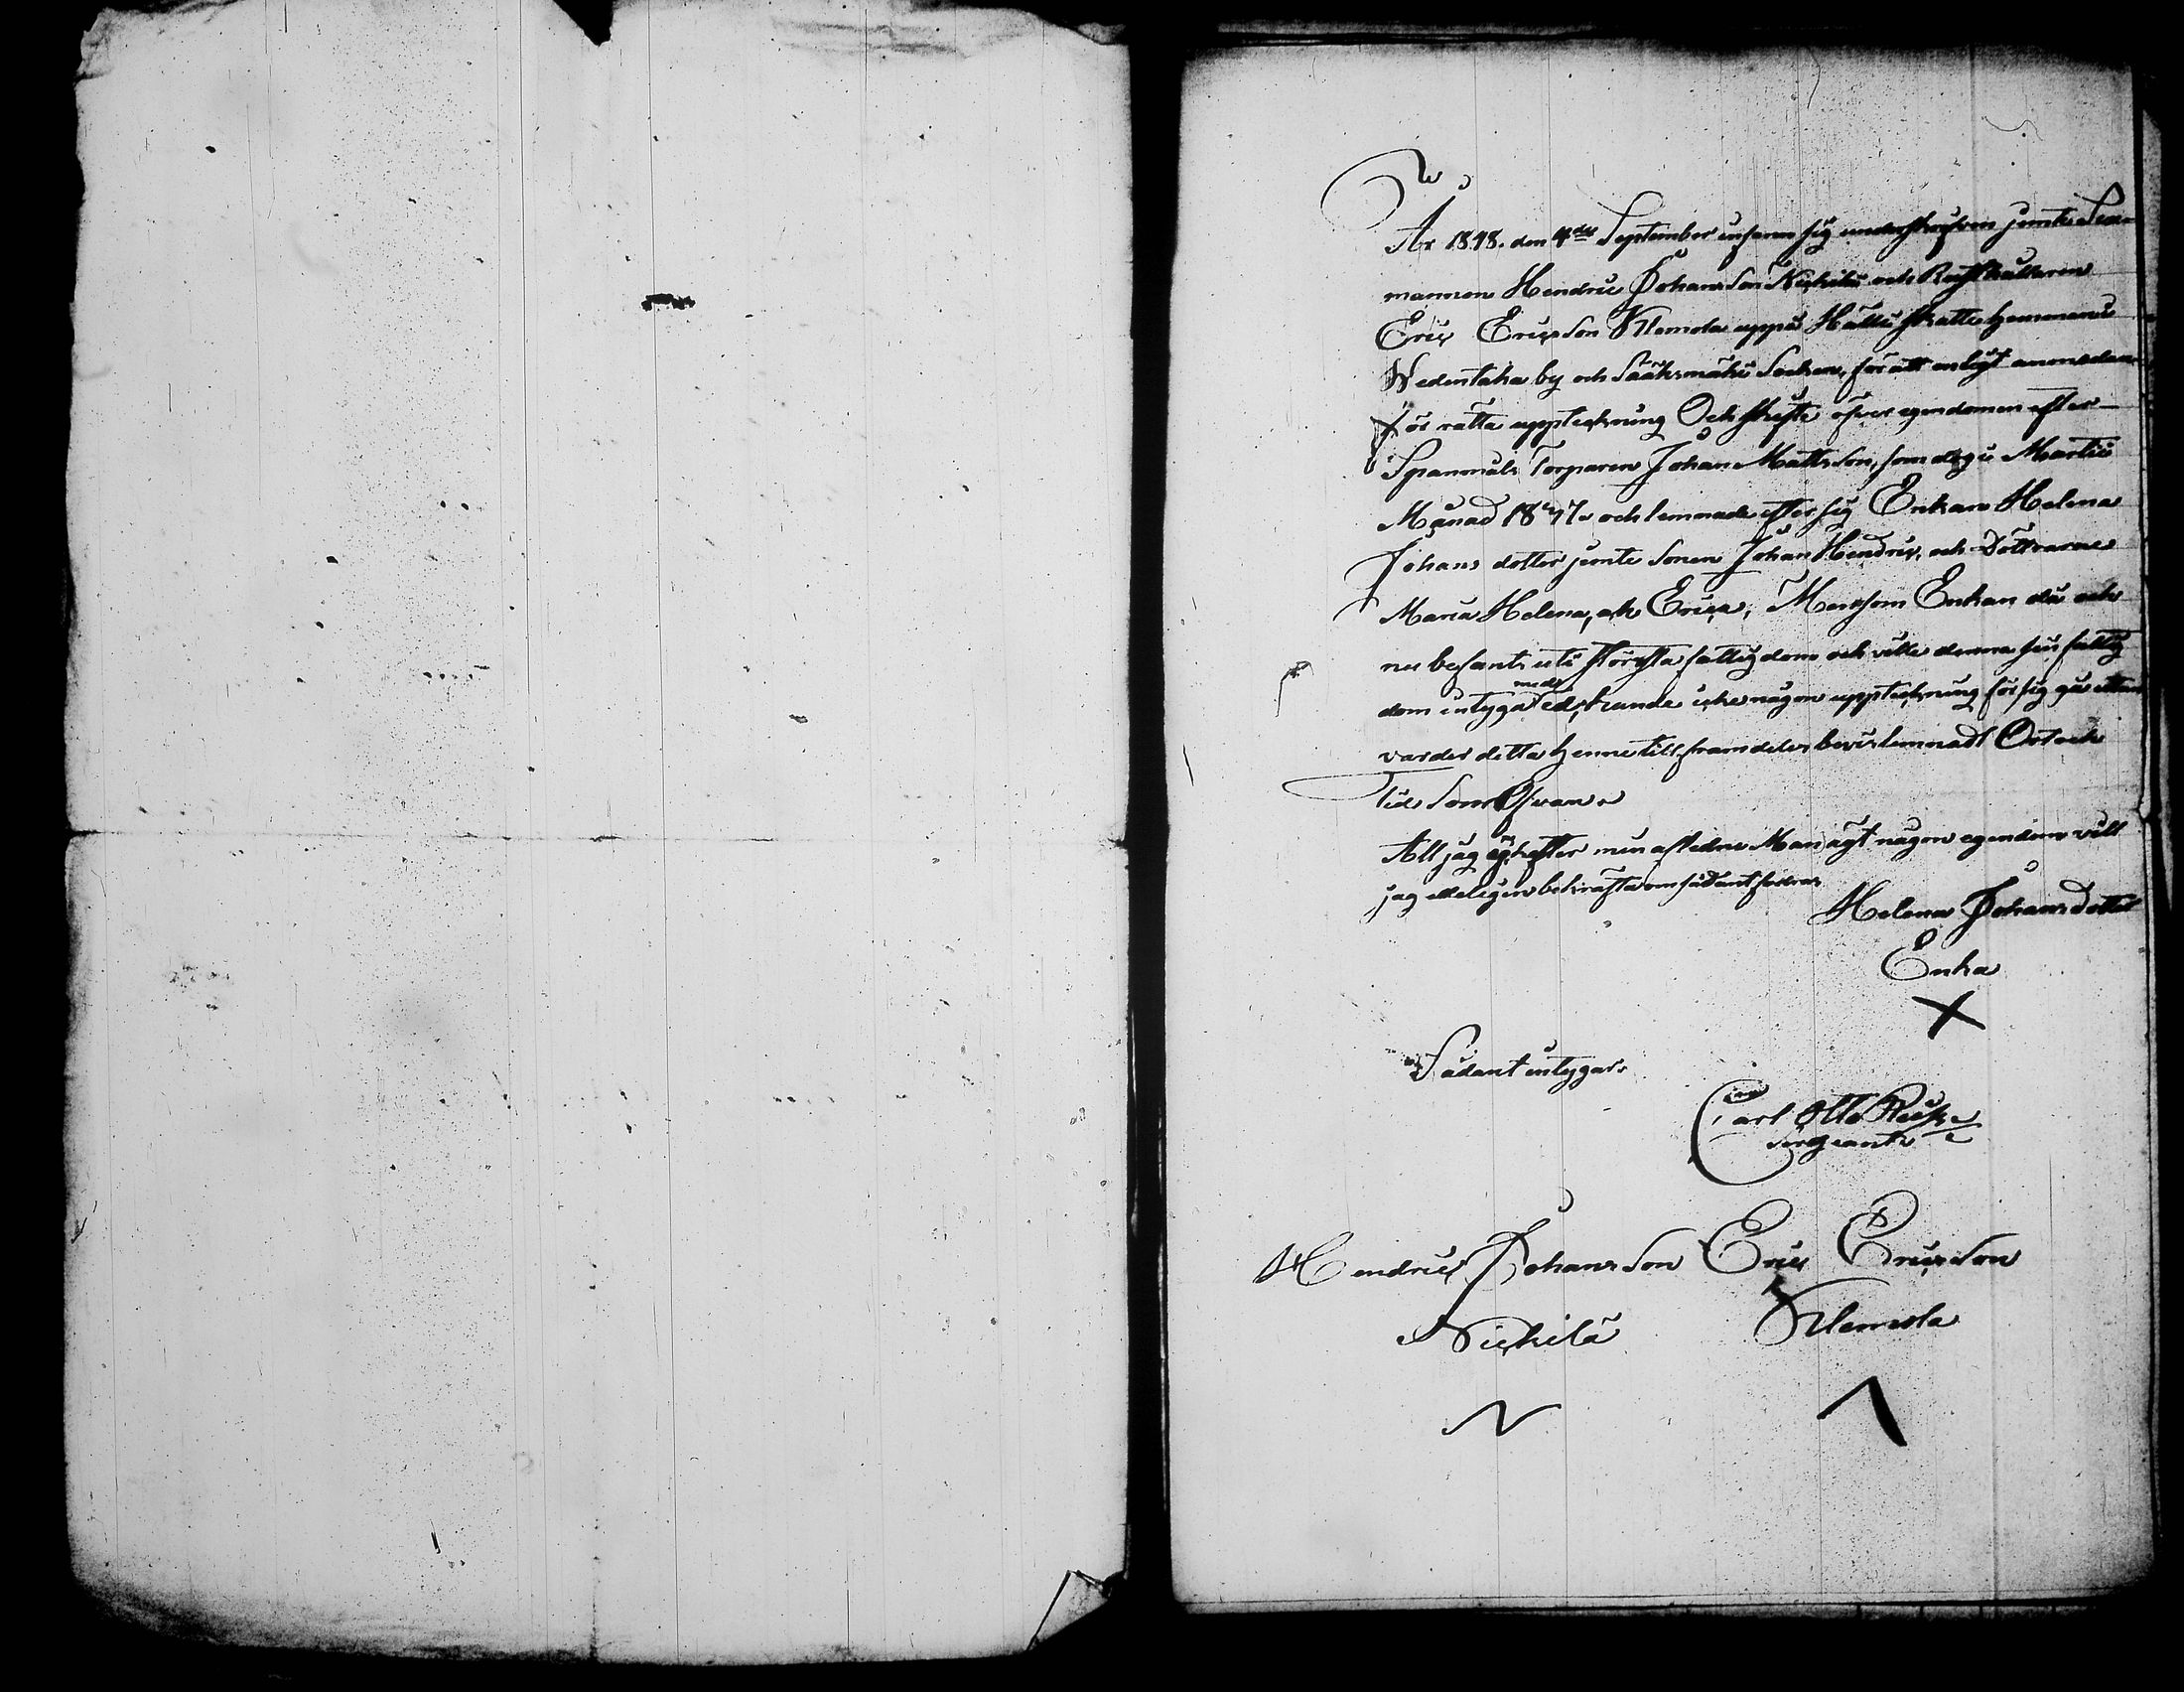 År 1848. den 4de September infann sig underskrifven jemte Nem=
mannen Hendric Johansson Nickilä och Rusthållaren
Eric Ericsson Klemola uppå Hälli skatte hemmanet
Wedentaka by och Sääksmäki Socken, för att enligt anmodan
förrätta uppteckning Och skifte öfver egendomen efter
Spanmåls Torparen Johan Mattsson, som dog i Martii
Månad 1847. och lemnade efter sig Enkan Helena
Johans dotter jemte sonen Johan Hendric, och Döttrarne
Maria Helena, och Erica, Men som Enkan då och
nu befants uti största fattigdom och ville denna sin fattig
dom intyga med ed, kunde icke någon uppteckning för sig gå utan
varder detta henne till framdeles bevis lemnadt Ort och
tid Som Ofvan.
Att jag ej efter min aflidne Man ägt någon egendom vill
jag edeligen bekräfta om sådant fodras
Helena Johansdotter
Enka
X
Sådant intygar.
Carl Otto
Sergeant
Hendric Johansson Eric Ericsson
Nickilä Klemola